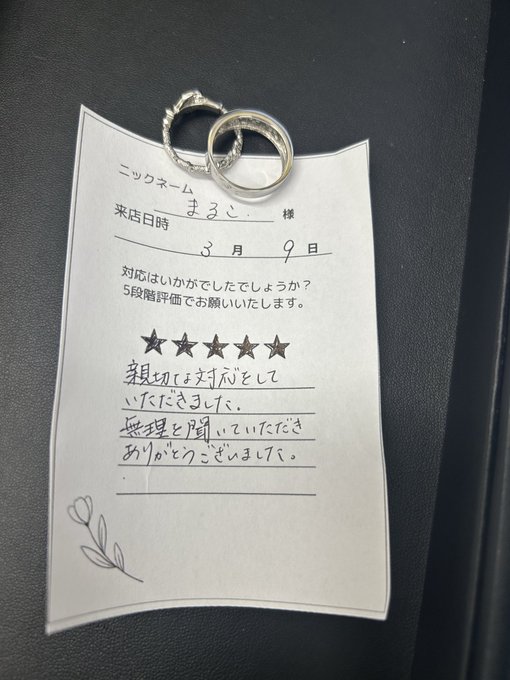 ニックネーム
まるこ 様
来店日時
3 月 9 日
対応はいかがでしたでしょうか?
5段階評価でお願いいたします。
★★★★★
親切な対応をして
いただきました.
無理を聞いていただき
ありがとうございました。